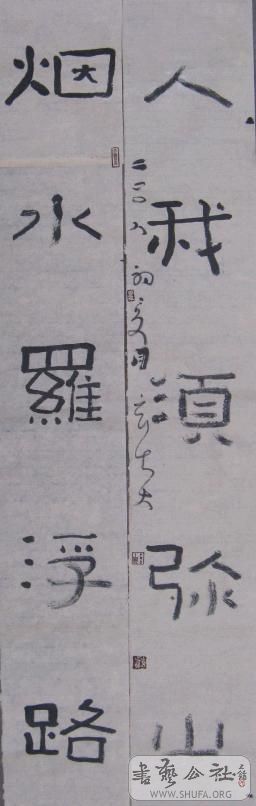 人我須弥山
烟水羅浮路
二〇〇八
書藝公社
WWW.SHUFA.ORG